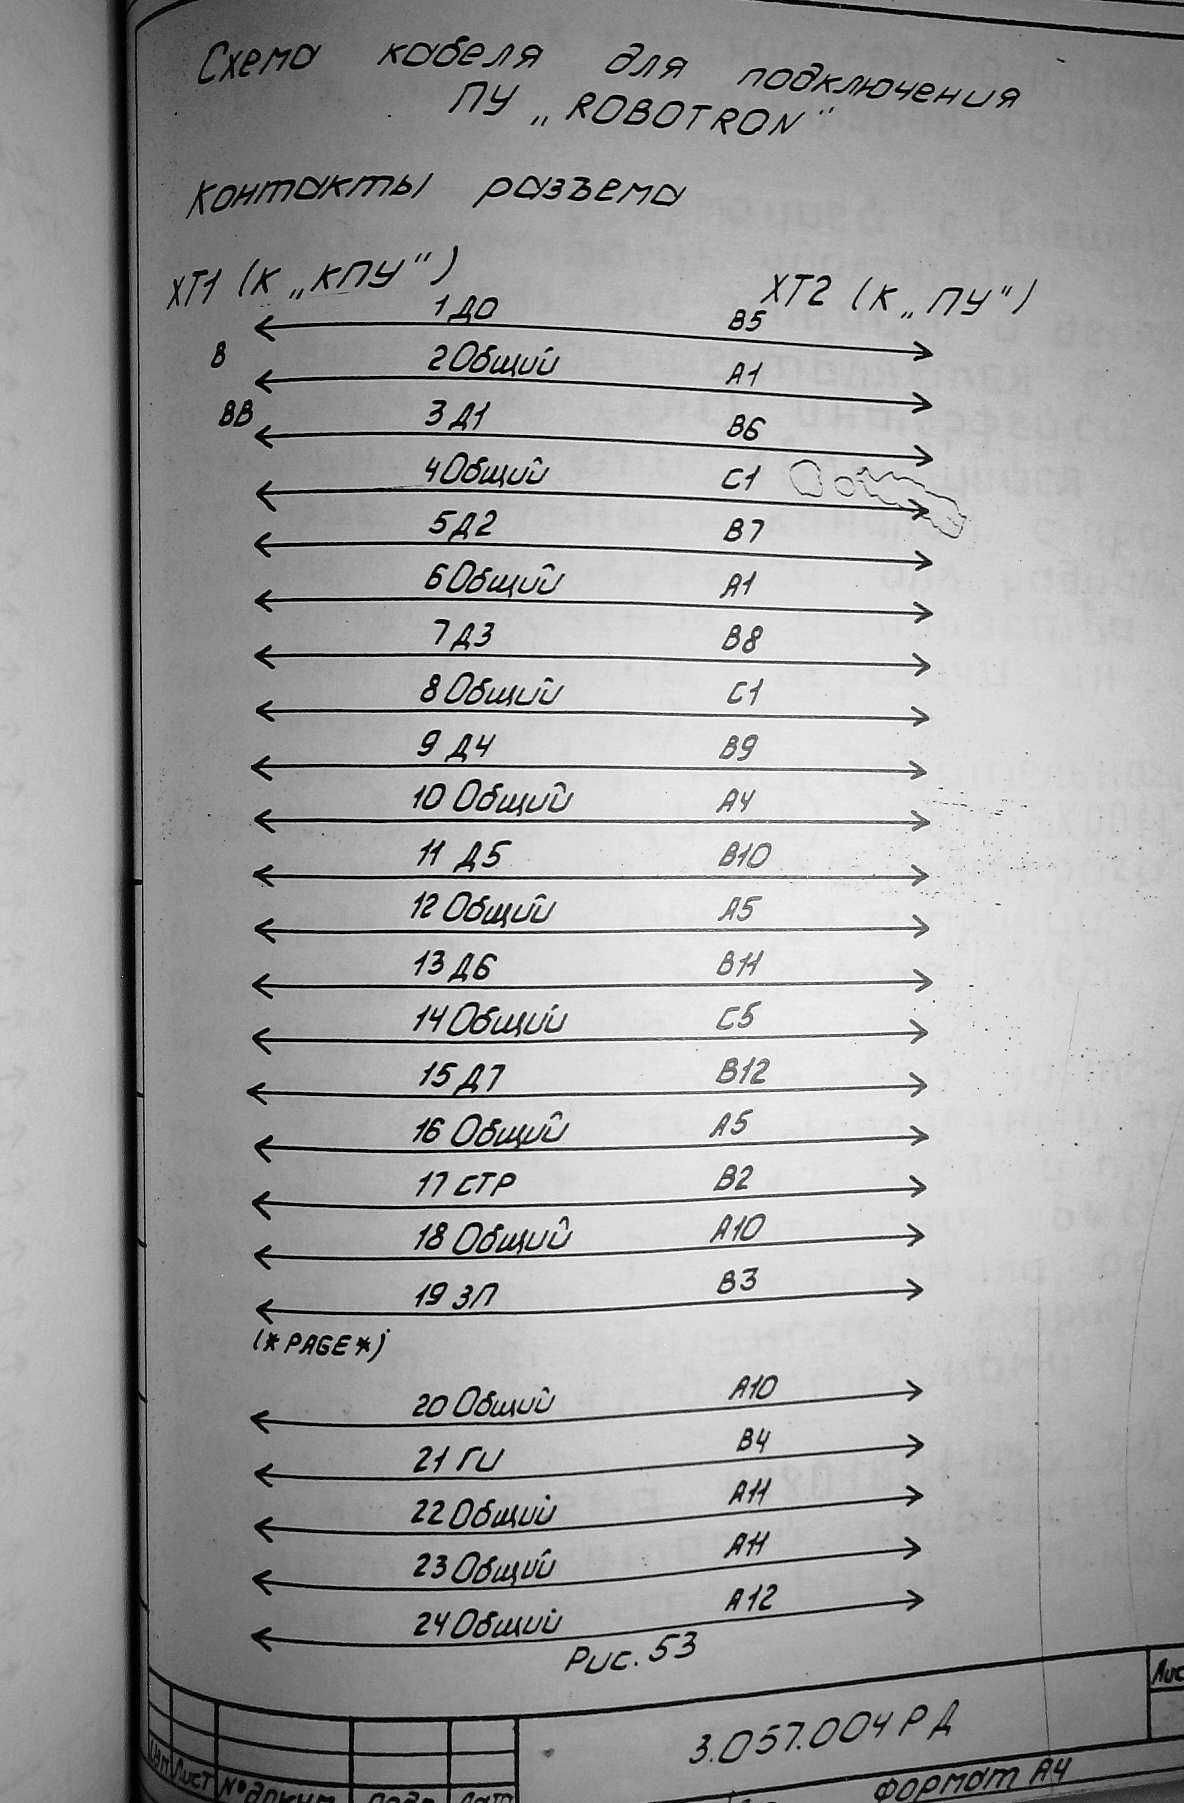 Схема кабеля для подключения
ПУ „ROBOTRON"
Контакты разъема
ХТ1 (к „КПУ") ХТ2 (к „ПУ")
1 Д0 В5
В 2 Общий А1
ВВ 3 Д1 В6
4 Общий С1
5 Д2 В7
6 Общий А1
7 Д3 В8
8 Общий С1
9 Д4 В9
10 Общий А4
11 Д5 В10
12 Общий А5
13 Д6 В11
14 Общий С5
15 Д7 В12
16 Общий А5
17 СТР В2
18 Общий А10
19 ЗП В3
(*PAGE*)
20 Общий А10
21 ГИ В4
22 Общий А11
23 Общий А11
24 Общий А12
Рис. 53
3.057.004 РД
Лист № докум
Формат А4